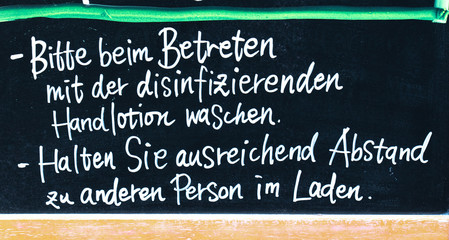 - Bitte beim Betreten
mit der disinfizierenden
Handlotion waschen.
- Halten Sie ausreichend Abstand
zu anderen Person im Laden.